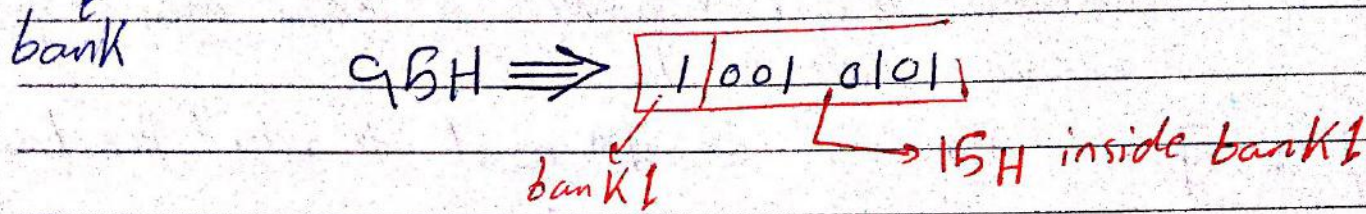 bank
95H ⇒ 1 001 0101
bank1 → 15H inside bank1